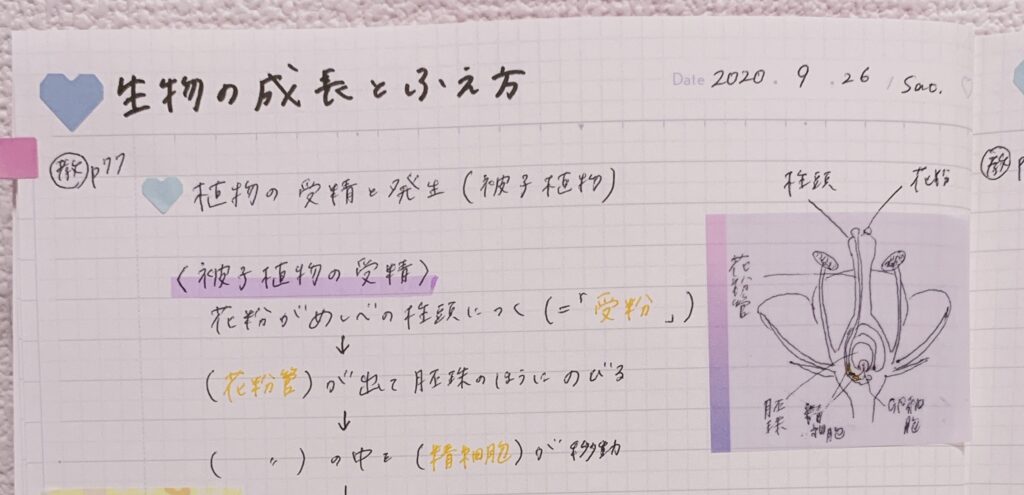 生物の成長とふえ方
Date 2020.9.26/Sat.
教p77
植物の受精と発生(被子植物)
〈被子植物の受精〉
花粉がめしべの柱頭につく(=「受粉」)
↓
(花粉管)が出て胚珠のほうにのびる
↓
( 〃 )の中を(精細胞)が移動
↓
柱頭
花粉
花粉管
胚珠
精細胞
卵細胞
教p